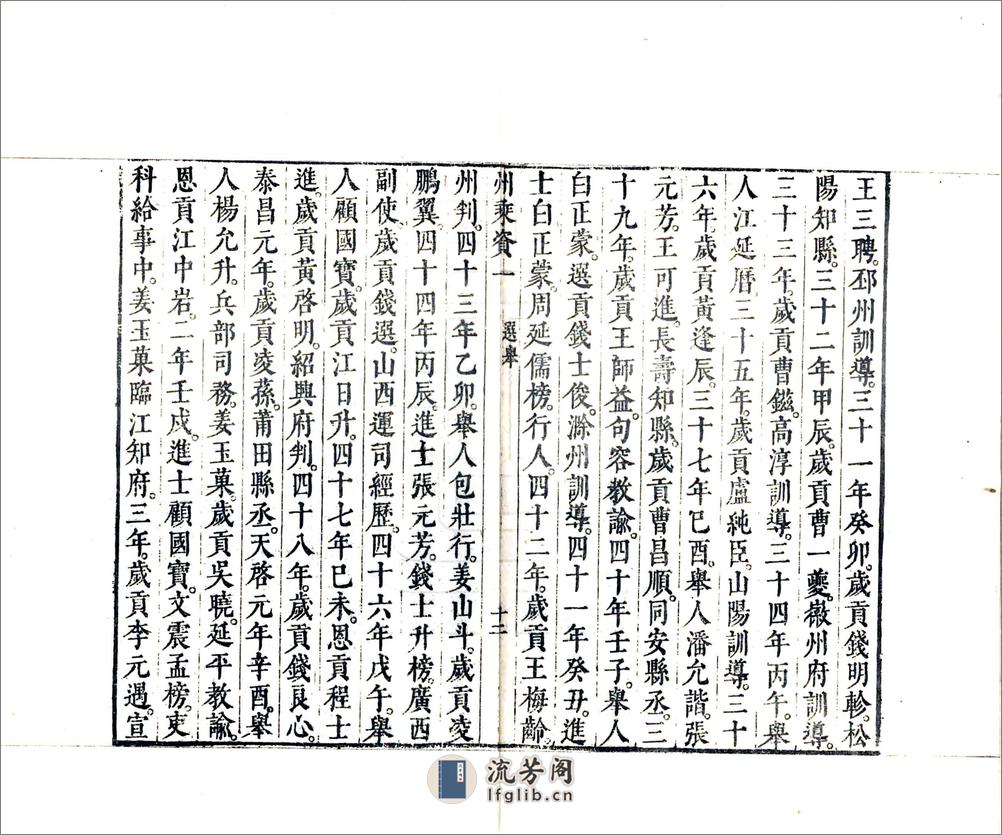 王三聘。邳州訓導。三十一年癸卯。歲貢錢明軫。松
陽知縣。三十二年甲辰。歲貢曹一夔。徽州府訓導。
三十三年。歲貢曹鎡。高淳訓導。三十四年丙午。舉
人江延曆。三十五年。歲貢盧純臣。山陽訓導。三十
六年。歲貢黃逢辰。三十七年己酉。舉人潘允諧。張
元芳。王可進。長壽知縣。歲貢曹昌順。同安縣丞。三
十九年。歲貢王師益。句容教諭。四十年壬子。舉人
白正蒙。選貢錢士俊。滁州訓導。四十一年癸丑。進
士白正蒙。周延儒榜。行人。四十二年。歲貢王梅齡。
州乘資一 選舉 十二
州判。四十三年乙卯。舉人包壯行。姜山斗。歲貢凌
鵬翼。四十四年丙辰。進士張元芳。錢士升榜。廣西
副使。歲貢錢選。山西運司經歷。四十六年戊午。舉
人顧國寶。歲貢江日升。四十七年己未。恩貢程士
進。歲貢黃啓明。紹興府判。四十八年。歲貢錢良心。
泰昌元年。歲貢凌蓀。莆田縣丞。天啓元年辛酉。舉
人楊允升。兵部司務。姜玉菓。歲貢吳曉。延平教諭。
恩貢江中岩。二年壬戌。進士顧國寶。文震孟榜。吏
科給事中。姜玉菓臨江知府。三年。歲貢李元遇。宣
流芳阁
lfglib.cn